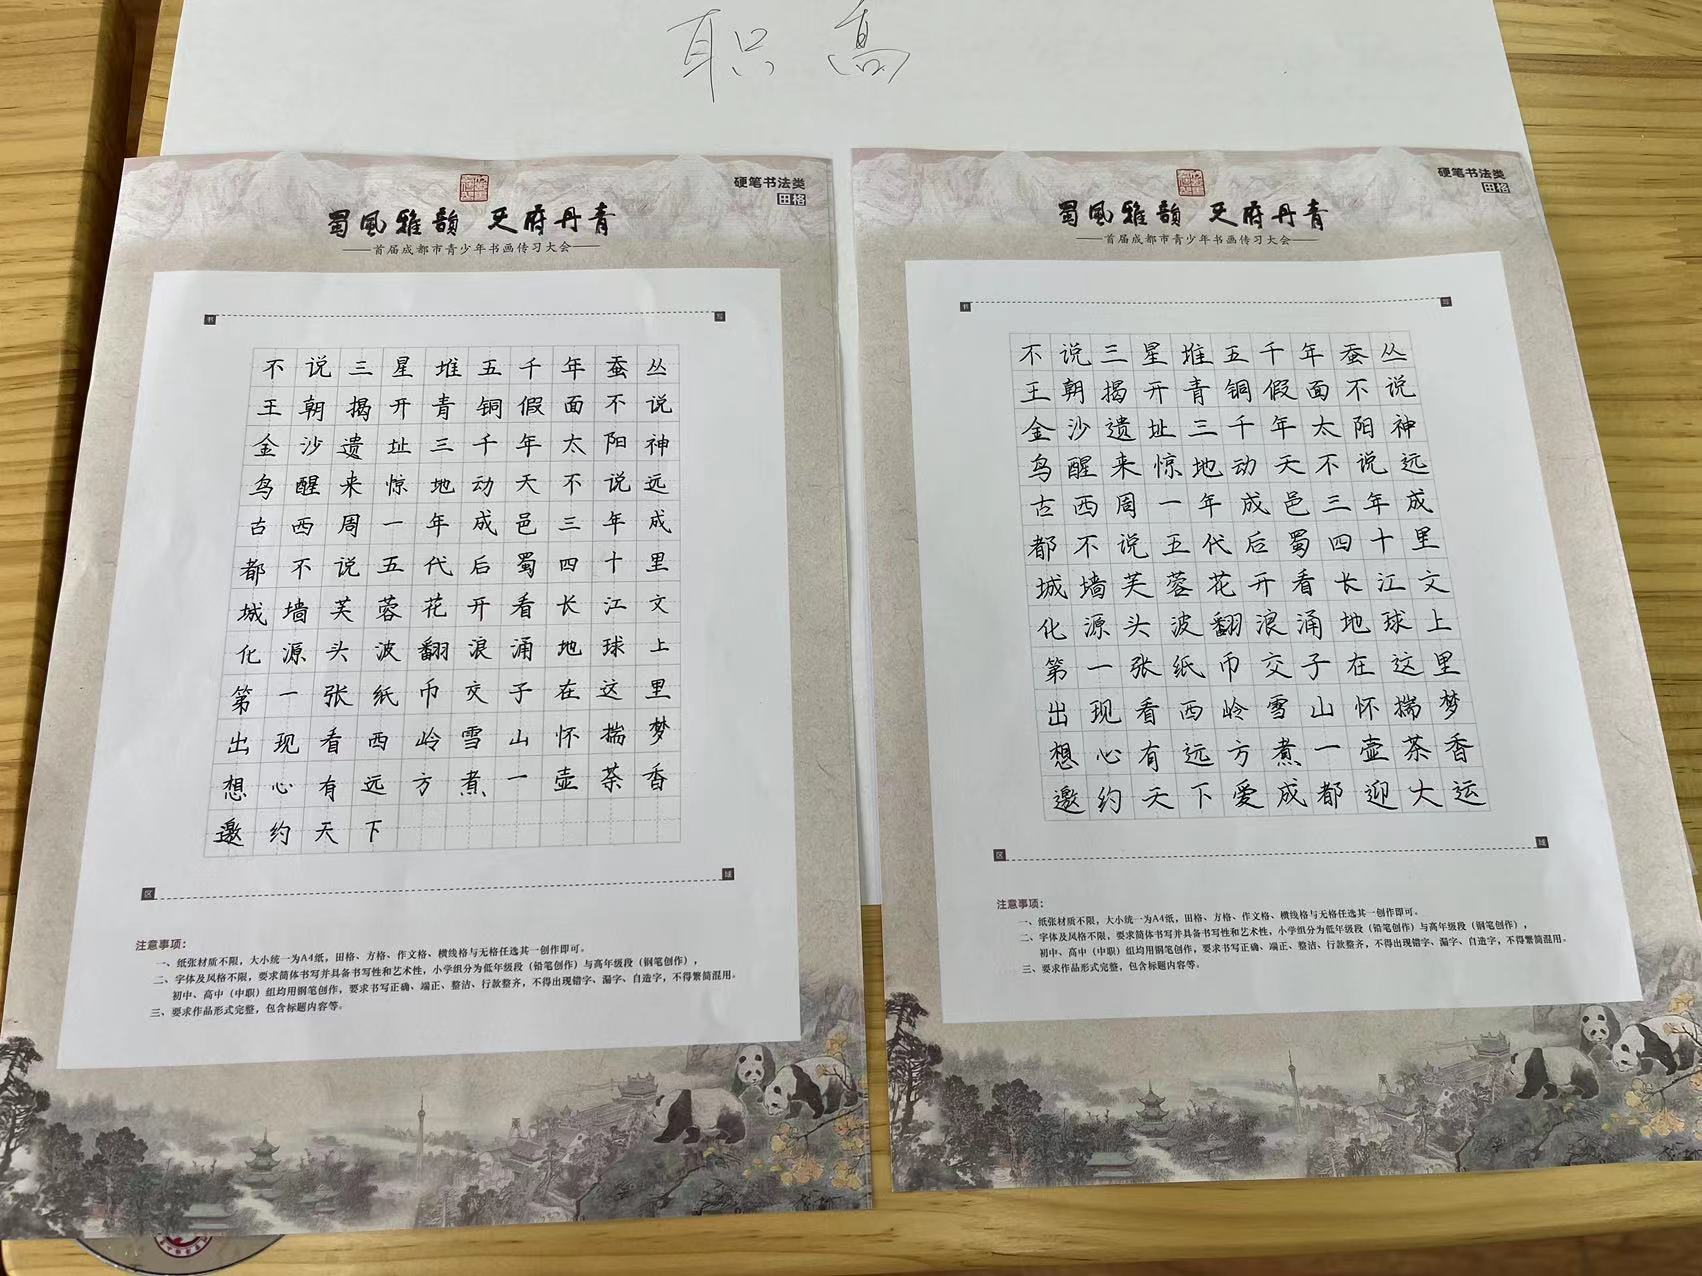 职高
硬笔书法类
田格
蜀风雅韵 天府丹青
——首届成都市青少年书画传习大会——
书 写
不说三星堆五千年蚕丛
王朝揭开青铜假面不说
金沙遗址三千年太阳神
鸟醒来惊地动天不说远
古西周一年成邑三年成
都不说五代后蜀四十里
城墙芙蓉花开看长江文
化源头波翻浪涌地球上
第一张纸币交子在这里
出现看西岭雪山怀揣梦
想心有远方煮一壶茶香
邀约天下
区 域
注意事项：
一、纸张材质不限，大小统一为A4纸，田格、方格、作文格、横线格与无格任选其一创作即可。
二、字体及风格不限，要求简体书写并具备书写性和艺术性，小学组分为低年级段（铅笔创作）与高年级段（钢笔创作），
初中、高中（中职）组均用钢笔创作，要求书写正确、端正、整洁、行款整齐，不得出现错字、漏字、自造字，不得繁简混用。
三、要求作品形式完整，包含标题内容等。
硬笔书法类
田格
蜀风雅韵 天府丹青
——首届成都市青少年书画传习大会——
书 写
不说三星堆五千年蚕丛
王朝揭开青铜假面不说
金沙遗址三千年太阳神
鸟醒来惊地动天不说远
古西周一年成邑三年成
都不说五代后蜀四十里
城墙芙蓉花开看长江文
化源头波翻浪涌地球上
第一张纸币交子在这里
出现看西岭雪山怀揣梦
想心有远方煮一壶茶香
邀约天下爱成都迎大运
区 域
注意事项：
一、纸张材质不限，大小统一为A4纸，田格、方格、作文格、横线格与无格任选其一创作即可。
二、字体及风格不限，要求简体书写并具备书写性和艺术性，小学组分为低年级段（铅笔创作）与高年级段（钢笔创作），
初中、高中（中职）组均用钢笔创作，要求书写正确、端正、整洁、行款整齐，不得出现错字、漏字、自造字，不得繁简混用。
三、要求作品形式完整，包含标题内容等。